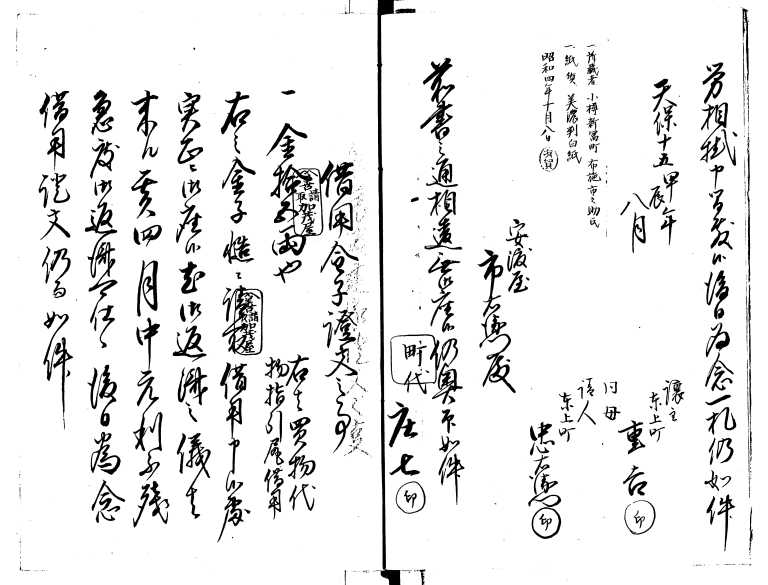 労相掛申間敷候後日為念一札仍如件
天保十五甲辰年
八月
譲主
東上町
重吉
印
同母
請人
東上町
忠右衛門
印
安渡屋
市右衛門殿
前書之通相違無御座候仍奥印如件
町代
庄七
印
一所蔵者 小樽新富町 布施市之助氏
一紙質 美濃判白紙
昭和四年十月八日
借用金子證文之事
一金拾五両也
右者買物代
物指引尾借用
右之金子慥ニ請取借用申候処
実正ニ御座候右御返済之儀者
来ル 四月中元利不残
急度御返済可仕候後日為念
借用証文仍而如件